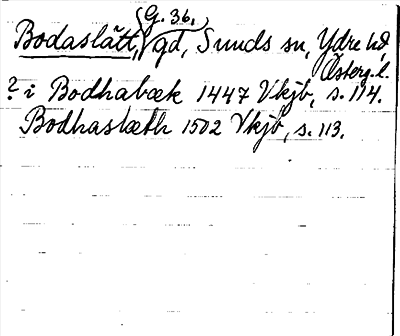 G. 36.
Bodaslätt, gd, Sunds sn, Ydre hd,
Österg. l.
? i Bodhabæk 1447 Vkjb, s. 114.
Bodhaslæth 1502 Vkjb, s. 113.